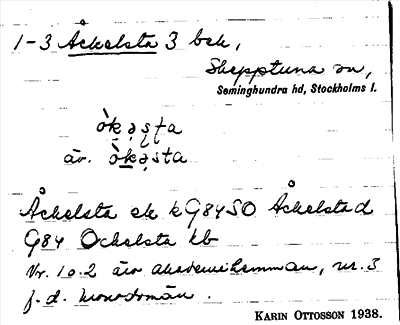 1-3 Åckelsta 3 bek,
Skepptuna sn,
Seminghundra hd, Stockholms l.
òkəsta
äv. òkəsta
Åckelsta ek kG84SO Åckelstad
G84 Ockelsta kb
Nr. 1 o. 2 äro akademihemman, nr. 3
f. d. kronodomän.
KARIN OTTOSSON 1938.